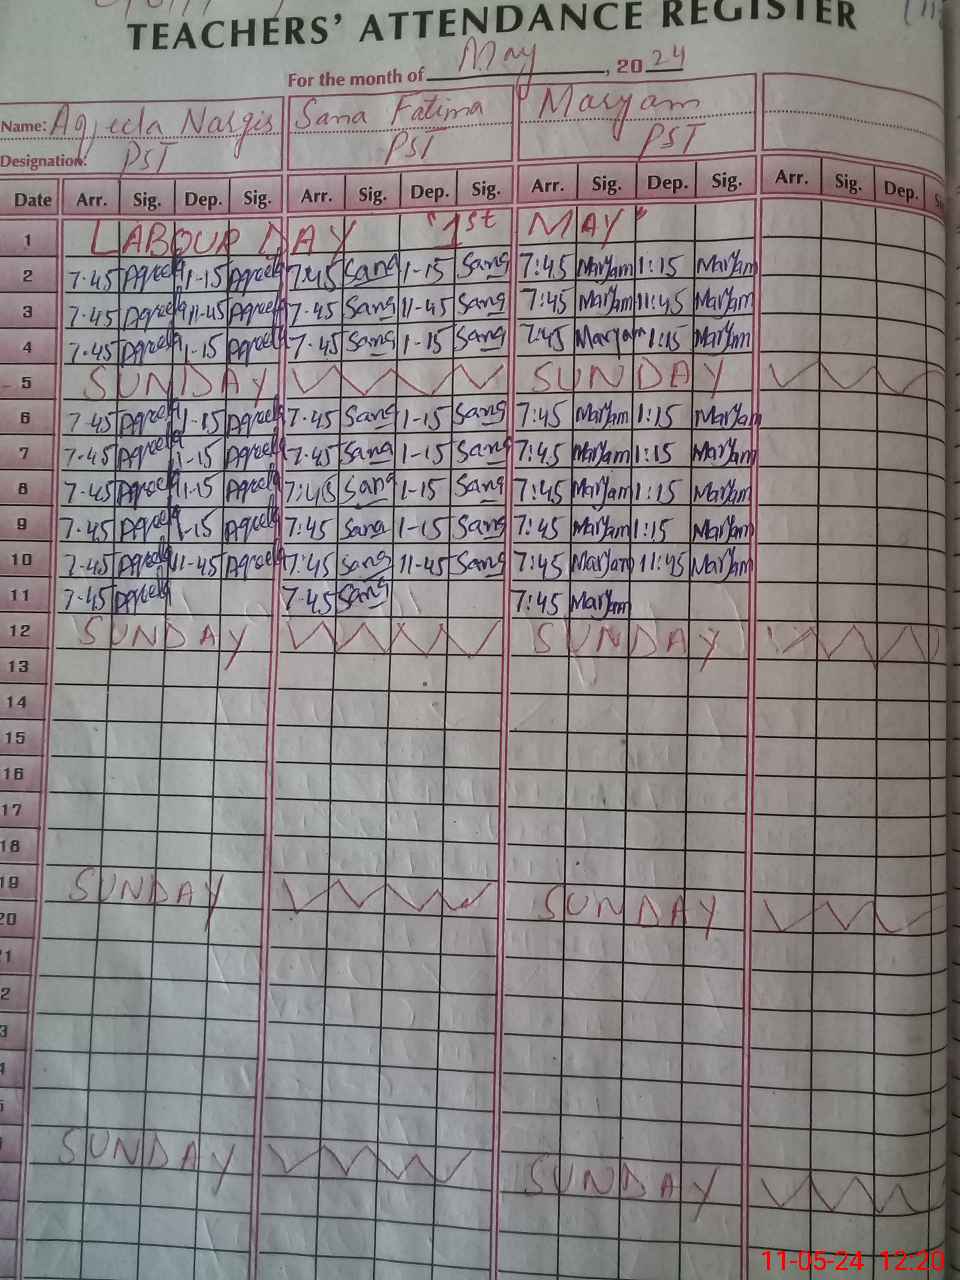 TEACHERS' ATTENDANCE REGISTER
For the month of May, 2024
Name: Aqeela Nargis Sana Fatima Maryam
Designation: PST PST PST
Date Arr. Sig. Dep. Sig. Arr. Sig. Dep. Sig. Arr. Sig. Dep. Sig. Arr. Sig. Dep.
1 LABOUR DAY "1st MAY"
2 7-45 Aqeela 1-15 Aqeela 7:45 Sana 1-15 Sana 7:45 Maryam 1:15 Maryam
3 7-45 Aqeela 11-45 Aqeela 7-45 Sana 11-45 Sana 7:45 Maryam 11:45 Maryam
4 7-45 Aqeela 1-15 Aqeela 7-45 Sana 1-15 Sana 7:45 Maryam 1:15 Maryam
5 SUNDAY SUNDAY
6 7-45 Aqeela 1-15 Aqeela 7-45 Sana 1-15 Sana 7:45 Maryam 1:15 Maryam
7 7-45 Aqeela 1-15 Aqeela 7-45 Sana 1-15 Sana 7:45 Maryam 1:15 Maryam
8 7-45 Aqeela 1-15 Aqeela 7:45 Sana 1-15 Sana 7:45 Maryam 1:15 Maryam
9 7-45 Aqeela 1-15 Aqeela 7:45 Sana 1-15 Sana 7:45 Maryam 1:15 Maryam
10 7-45 Aqeela 11-45 Aqeela 7:45 Sana 11-45 Sana 7:45 Maryam 11:45 Maryam
11 7-45 Aqeela 7-45 Sana 7:45 Maryam
12 SUNDAY SUNDAY
13
14
15
16
17
18
19 SUNDAY SUNDAY
20
1
2
3
SUNDAY SUNDAY
11-05-24 12:20